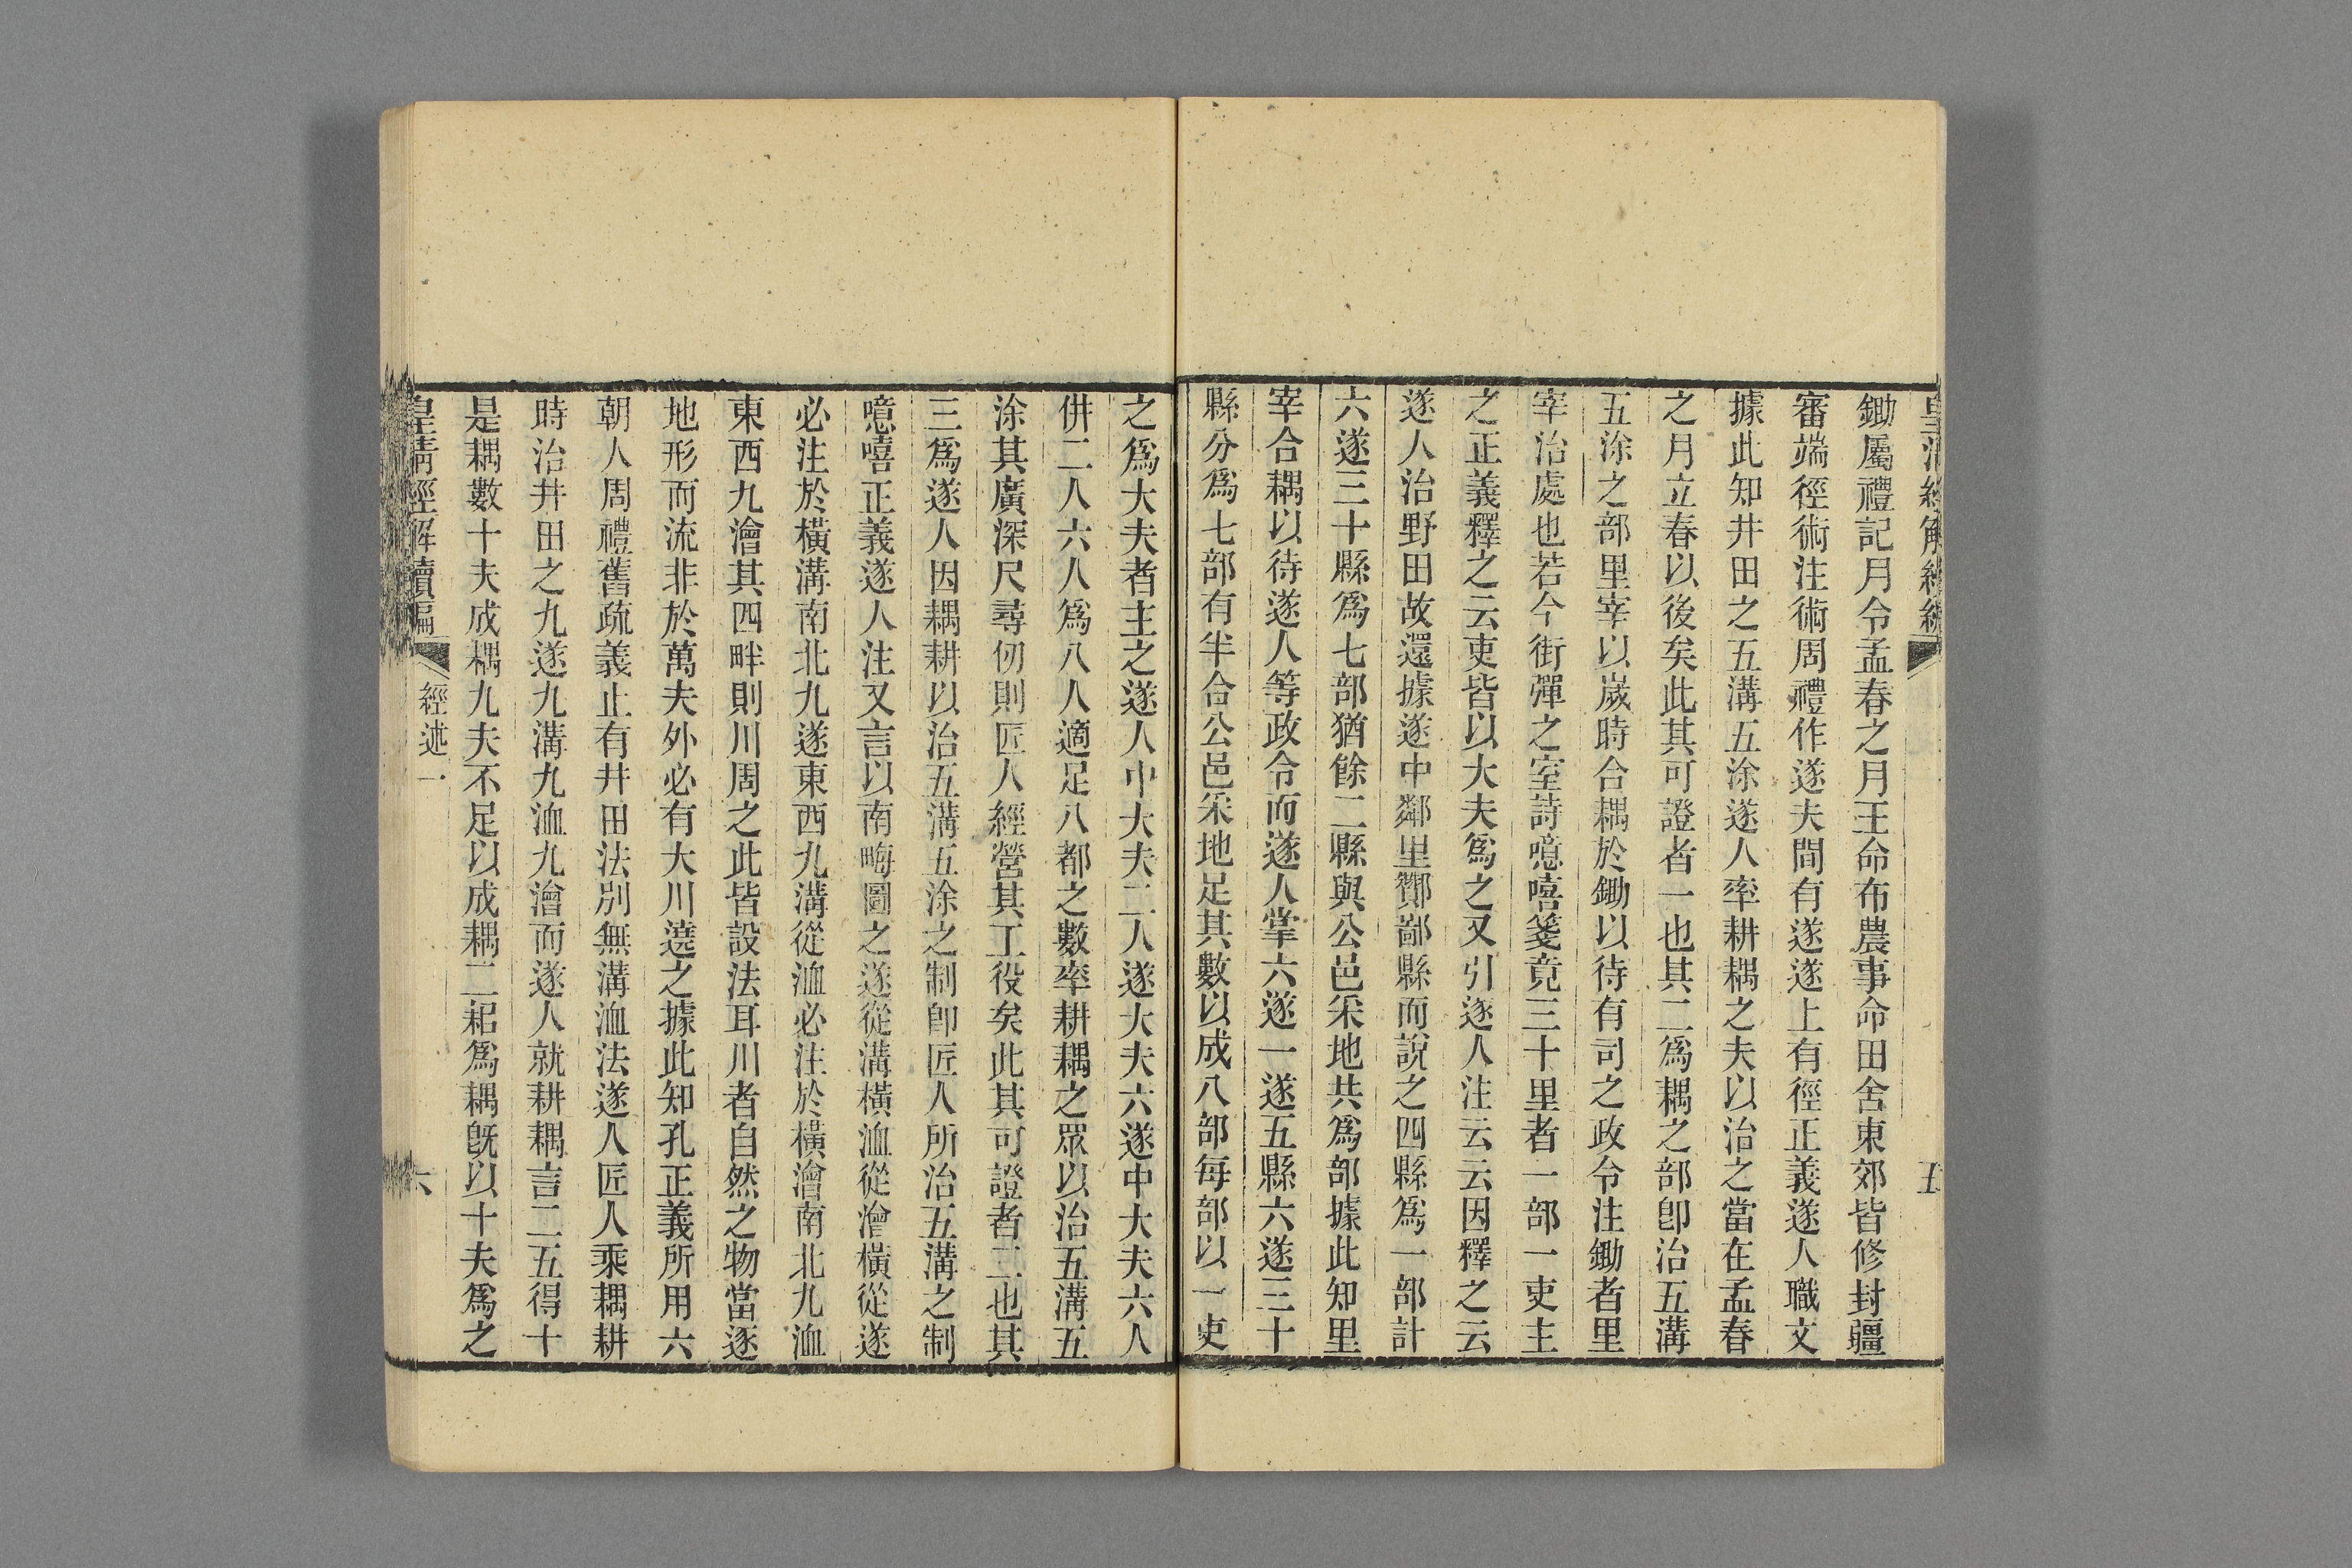 鋤屬禮記月令孟春之月王命布農事命田舍東郊皆修封疆
審端徑術注術周禮作遂夫間有遂遂上有徑正義遂人職文
據此知井田之五溝五涂遂人率耕耦之夫以治之當在孟春
之月立春以後矣此其可證者一也其二爲耦之部卽治五溝
五涂之部里宰以歲時合耦於鋤以待有司之政令注鋤者里
宰治處也若今街彈之室詩噫嘻箋竟三十里者一部一吏主
之正義釋之云吏皆以大夫爲之又引遂人注云云因釋之云
遂人治野田故還據遂中鄰里酇鄙縣而說之四縣爲一部計
六遂三十縣爲七部猶餘二縣與公邑采地共爲部據此知里
宰合耦以待遂人等政令而遂人掌六遂一遂五縣六遂三十
縣分爲七部有半合公邑采地足其數以成八部每部以一吏
之爲大夫者主之遂人中大夫二人遂大夫六遂中大夫六人
併二人六人爲八人適足八部之數率耕耦之眾以治五溝五
涂其廣深尺尋仞則匠人經營其工役矣此其可證者二也其
三爲遂人因耦耕以治五溝五涂之制卽匠人所治五溝之制
噫嘻正義遂人注又言以南畮圖之遂從溝橫洫從澮橫從遂
必注於橫溝南北九遂東西九溝從洫必注於橫澮南北九洫
東西九澮其四畔則川周之此皆設法耳川者自然之物當逐
地形而流非於萬夫外必有大川遶之據此知孔正義所用六
朝人周禮舊疏義止有井田法別無溝洫法遂人匠人乘耦耕
時治井田之九遂九溝九洫九澮而遂人就耕耦言二五得十
是耦數十夫成耦九夫不足以成耦二耜爲耦旣以十夫爲之
皇清經解續編
經述一
六